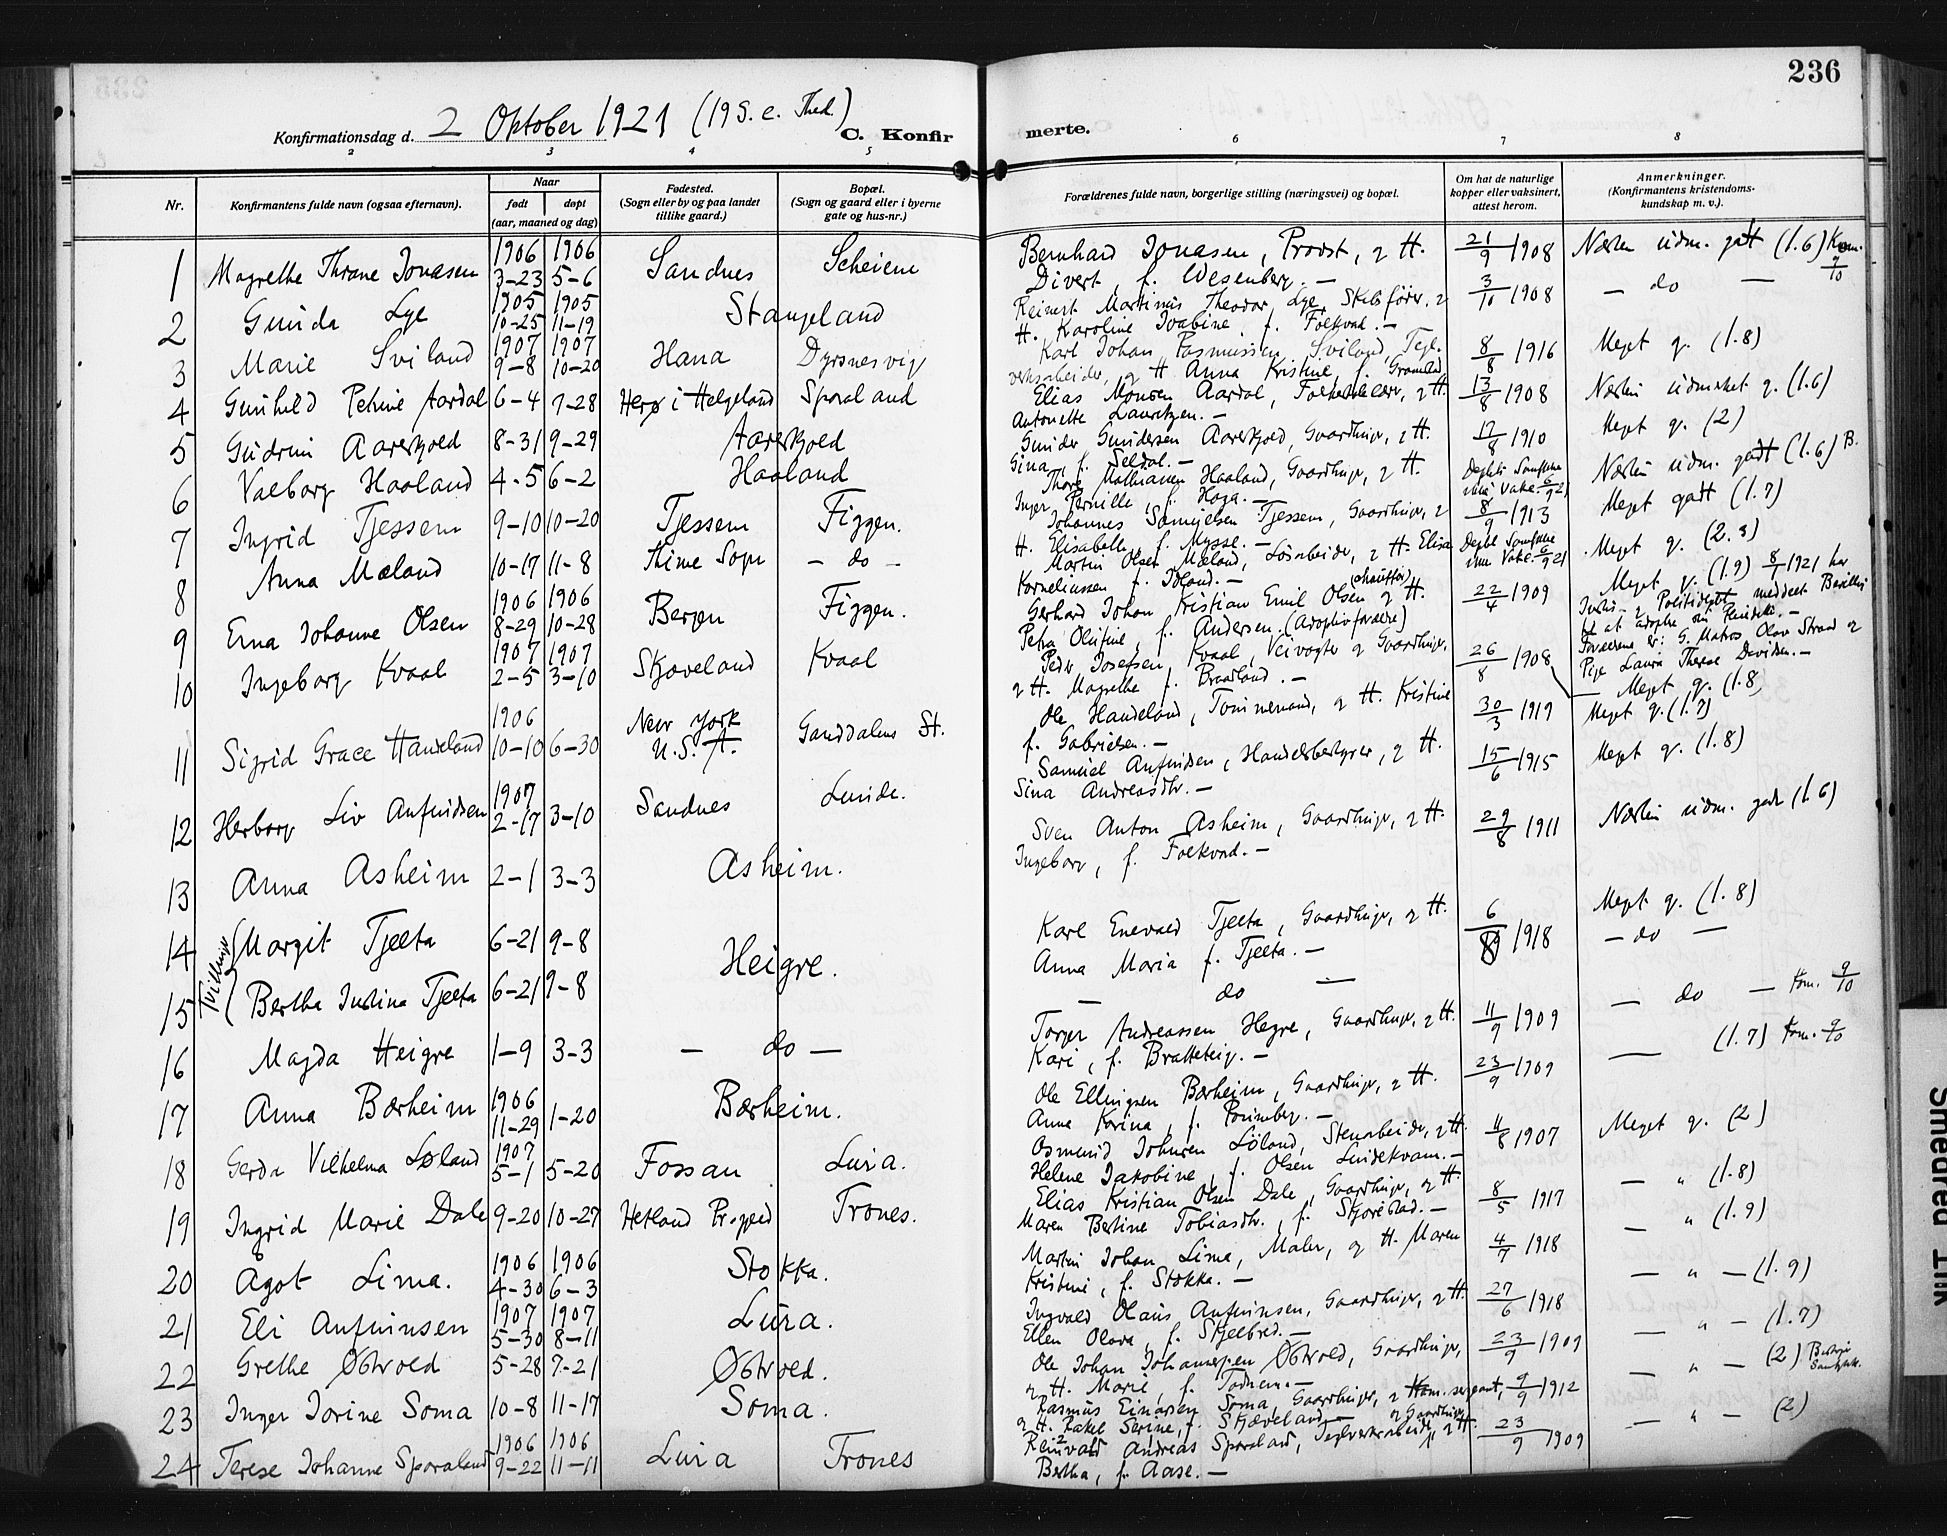 236
Konfirmationsdag d. 2 Oktober 1921 (19 S. e. Thed.)
C. Konfirmerte.
2 3 4 5 6 7 8
Nr.
Konfirmantens fulde navn (ogsaa efternavn).
Naar
født døpt
(aar, maaned og dag)
Fødested.
(Sogn eller by og paa landet
tillike gaard.)
Bopæl.
(Sogn og gaard eller i byerne
gate og hus-nr.)
Forældrenes fulde navn, borgerlige stilling (næringsvei) og bopæl.
Om hat de naturlige
kopper eller vaksinert,
attest herom.
Anmerkninger.
(Konfirmantens kristendoms-
kundskap m. v.).
1 Magrethe Thrane Jonasen 1906 3-23 1906 5-6 Sandnes Scheiene
Bernhard Jonasen, Provst, & H.
Divert, f. Wesenberg. —
21/9 1908 Næsten udm. gott (1.6) Kom. 9/10
2 Gunda Lye 1905 10-25 1905 11-19 Stangeland
Reinert Martinus Theodor Lye, Skibsfører, &
H. Karoline Joabine, f. Folkvord. —
3/10 1908 — do —
3 Marie Sviland 1907 9-8 1907 10-20 Hana Dyrsnesvig
Karl Johan Rasmussen Sviland, Tegl-
verksarbeider, & H. Anna Kristine, f. Gramstad
8/8 1916 Meget g. (1.8)
4 Gunhild Petrine Aardal 6-4 7-28 Herø i Helgeland Sporaland
Elias Monsen Aardal, Folkeskolelær., & H.
Antonette Lauritzen. —
13/8 1908 Næsten udmerket g. (1.6)
5 Gudrun Aareskjold 8-31 9-29 Aareskjold
Gunder Gundersen Aareskjold, Gaardbruger, & H.
Gina, f. Seldal. —
17/8 1910 Meget g. (2)
6 Valborg Haaland 4-5 6-2 Haaland
Thore Mathiassen Haaland, Gaardbruger, & H.
Inger Pernille, f. Hoga. —
Næsten udm. godt (1.6) B.
7 Ingrid Tjessem 9-10 10-20 Tjessem Figgen.
Johannes Samuelsen Tjessem, Gaardbruger, &
H. Elisabeth, f. Nysse. —
8/9 1913 Meget gott (1.7)
8 Anna Mæland 10-17 11-8 Thime Sogn — do —
Martin Olsen Mæland, Løsarbeider, & H. Elisa
Korneliussen f. Idland. —
Meget g. (2.3)
9 Erna Johanne Olsen 1906 8-29 1906 10-28 Bergen Figgen.
Gerhard Johan Kristian Emil Olsen (chauffør) & H.
Petra Olufine, f. Andersen. (Adoptivforældre)
22/4 1909 Meget g. (1.9) 8/7 1921 har
Justis- og Politidept meddelt Bevilling
til at adoptere
Forældrene er: G. Matros Olav Strand og
Pige Laura Therese Davidsen. —
10 Ingeborg Kvaal 1907 2-5 1907 3-10 Skjæveland Kvaal
Peder Josefsen Kvaal, Veivogter & Gaardbruger,
& H. Magrethe f. Braadland. —
26/8 1908 — Meget g. (1.8)
11 Sigrid Grace Haneland 1906 10-10 6-30 New York U.S.A. Ganddalens St.
Ole Handeland, Tømmermand, & H. Kristine
f. Gabrielsen. —
30/3 1919 Meget g. (1.7)
12 Herborg Liv Anfindsen 1907 2-17 3-10 Sandnes Lunde.
Samuel Anfindsen, Handelsbestyrer, & H.
Sina Andreasdtr. —
15/6 1915 Meget g. (1.8)
13 Anna Asheim 2-1 3-3 Asheim.
Sven Anton Asheim, Gaardbruger, & H.
Ingeborg, f. Folkvord. —
29/8 1911 Næsten udm. godt (1.6)
Tvillinger
14 Margit Tjelta 6-21 9-8 Heigre.
Karl Enevald Tjelta, Gaardbruger, & H.
Anna Maria f. Tjelta. —
6/8 1918 Meget g. (1.8)
15 Bertha Justina Tjelta 6-21 9-8
— do — — do —
16 Magda Heigre 1-9 3-3 — do —
Torger Andreassen Hegre, Gaardbruger, & H.
Kari, f. Bratteteig. —
11/9 1909 — do — Kom. 9/10
17 Anna Bærheim 1906 11-29 1-20 Bærheim.
Ole Ellingsen Bærheim, Gaardbruger, & H.
Anne Karina, f. —
23/9 1909 — (1.7) Kom. 9/10
18 Gerda Vilhelma Løland 1907 5-1 5-20 Fossan Lura.
Osmund Johnsen Løland, Stenarbeider, & H.
Helene Jakobine, f. Olsen Lindekvam. —
11/8 1907 Meget g. (2)
19 Ingrid Marie Dale 9-20 10-27 Hetland Pr.gjeld Trones.
Elias Kristian Olsen Dale, Gaardbruger, & H.
Maren Bertine Tobiasdtr., f. Skjørestad. —
8/5 1917 — " (1.8)
20 Ågot Lima. 1906 4-30 1906 6-3 Stokka.
Martin Johan Lima, Maler, og H. Maren
Kristine, f. Stokka. —
4/7 1918 — " (1.9)
21 Eli Anfinnsen 1907 5-30 1907 8-11 Lura.
Ingvald Olaus Anfinnsen, Gaardbruger, & H.
Ellen Olava, f. Skjelbred. —
27/6 1918 — " — (1.9)
22 Grethe Østvold 5-28 7-21 Østvold.
Ole Johan Johannesen Østvold, Gaardbruger,
& H. Marie, f. Todnem. —
23/9 1909 — " — (1.7)
23 Inger Jorine Soma 10-8 11-17 Soma.
Rasmus Einarsen Soma, Gaardbruger, & Kom. sergeant,
& H. Rakel Serine, f. Skjæveland —
9/9 1912 — " — (2)
24 Terese Johanne Sporaland 1906 9-22 1906 11-11 Lura Trones
Reinvald Andreas Sporaland, Teglverksarbeider og Gaardbruger, & H.
Bertha, f. Aase. —
23/9 1909 — " — (2)
Smedred Trik